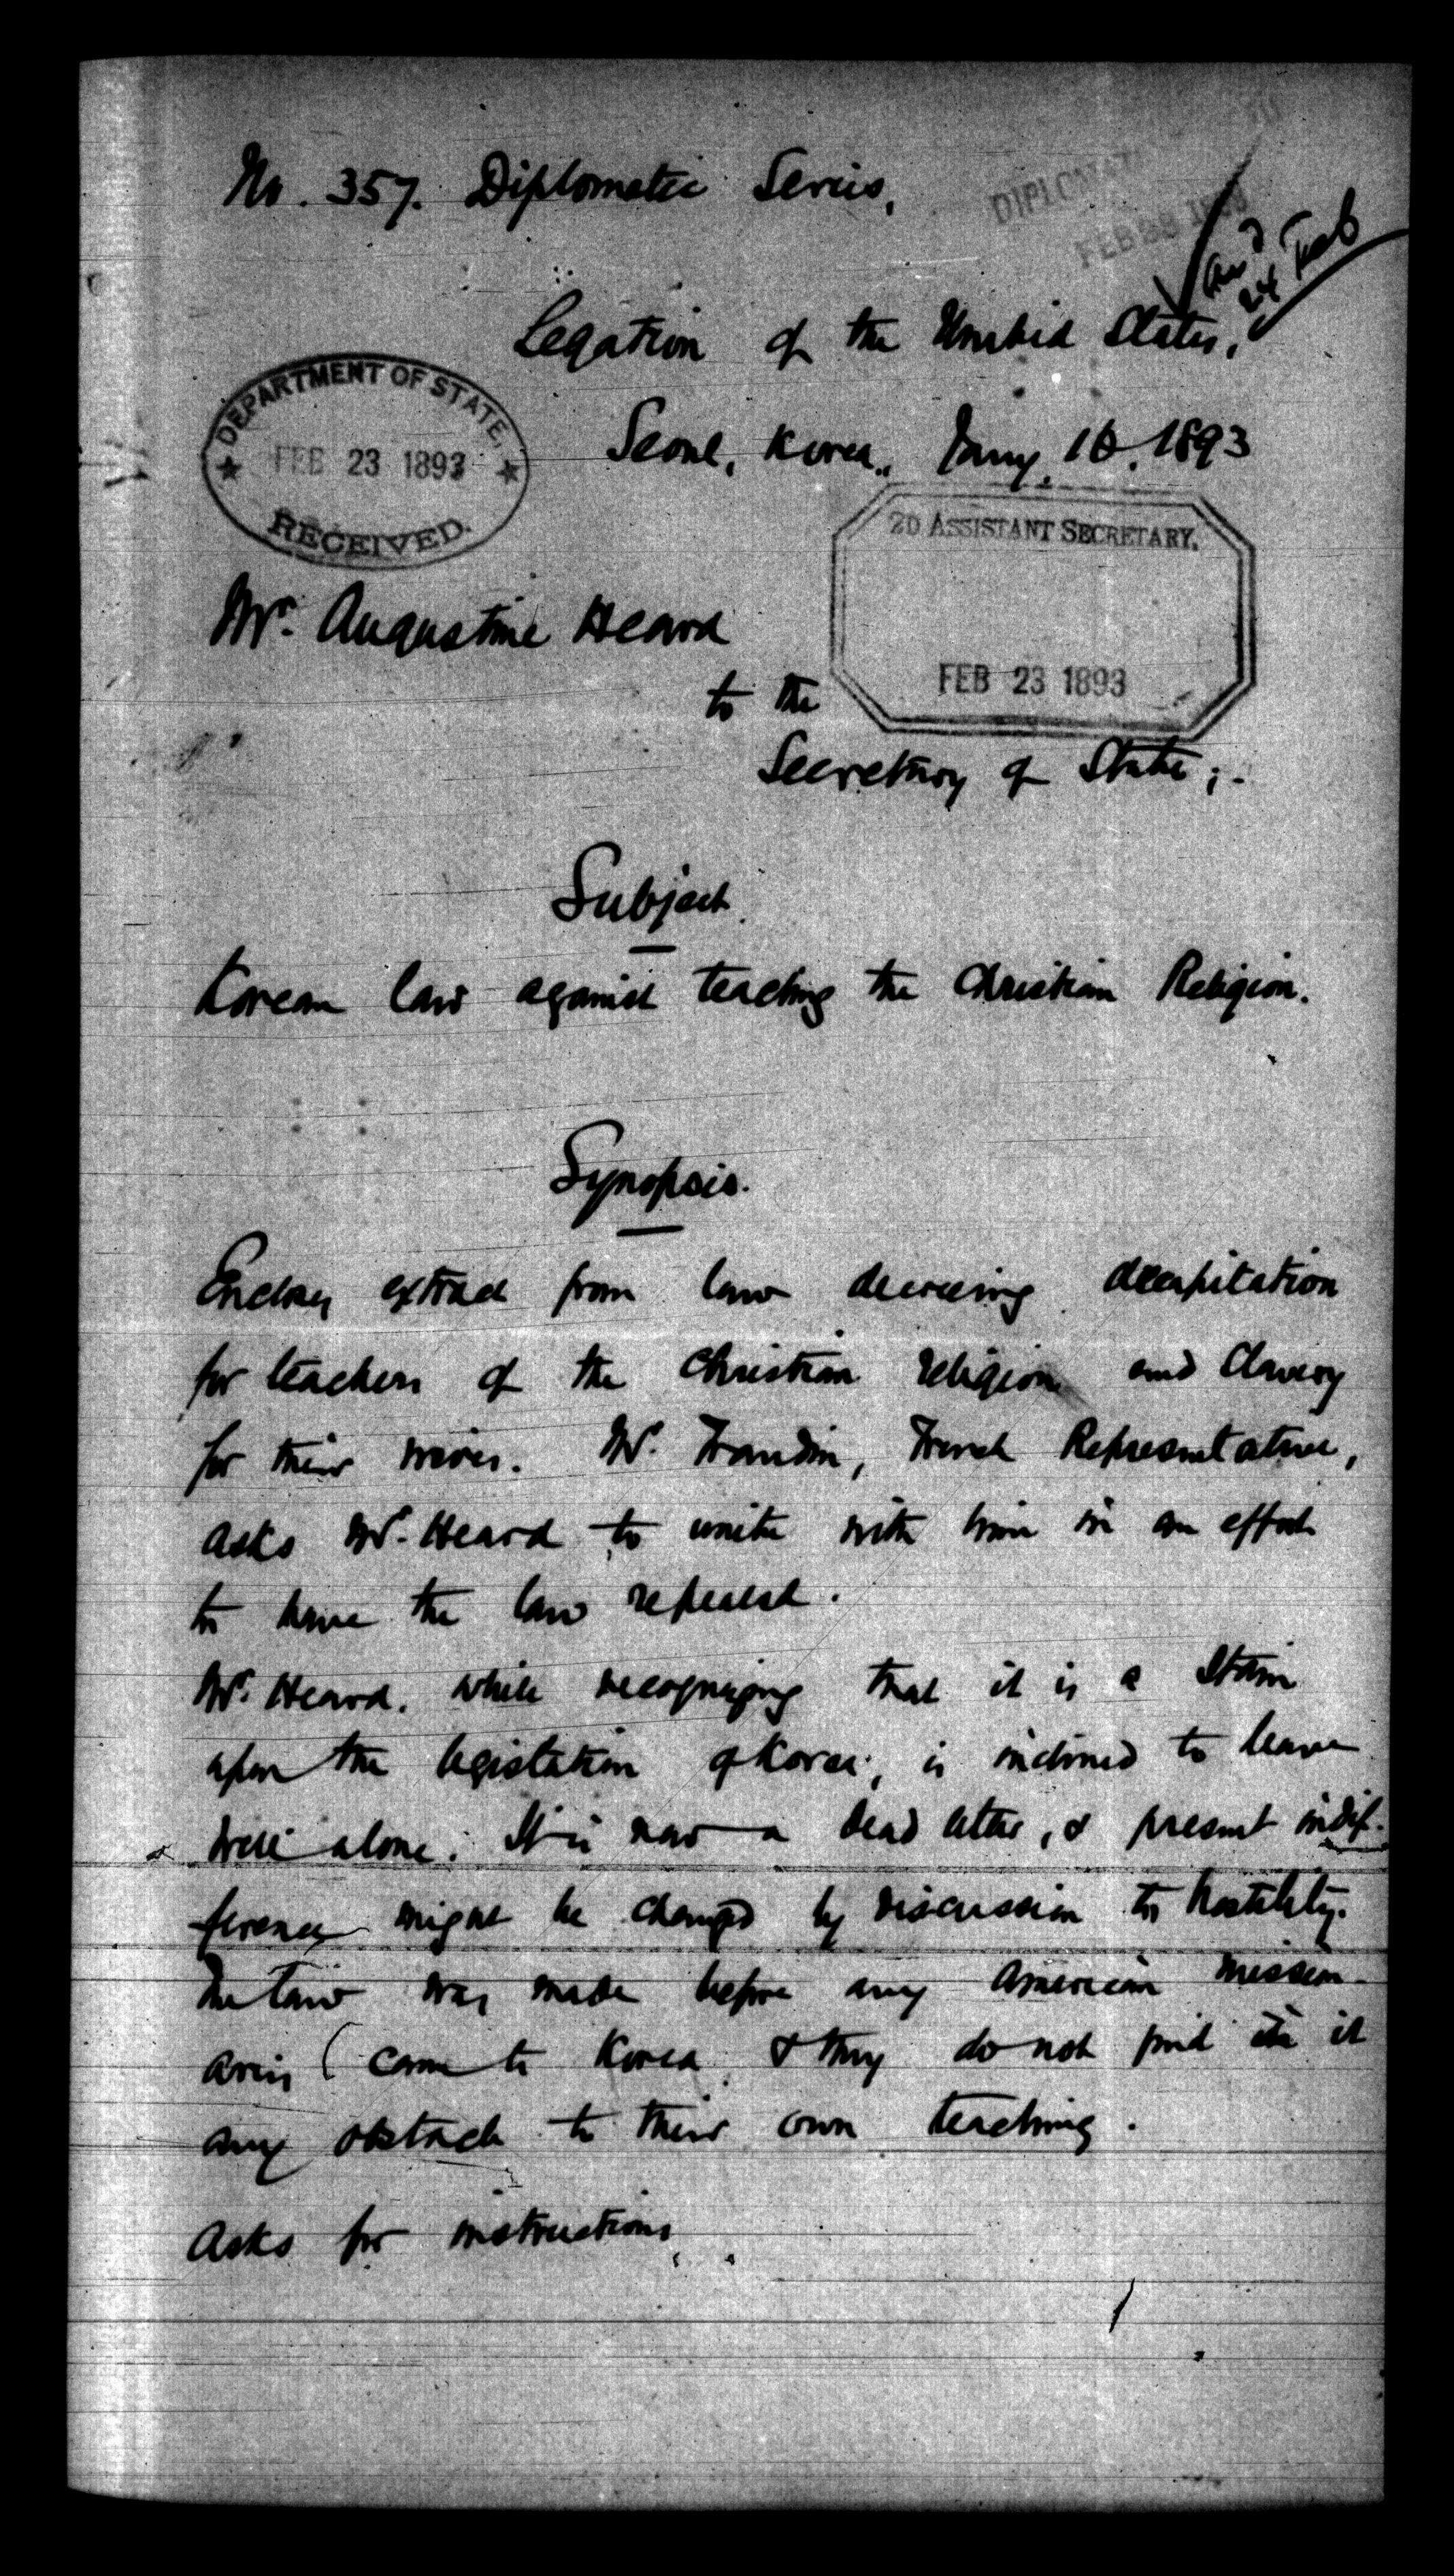 No. 357. Diplomatic Series,
DIPLOMATIC
FEB 28 1893
24 Feb
Legation of the United States,
DEPARTMENT OF STATE,
FEB 23 1893
RECEIVED.
Seoul, Korea, Jany. 16, 1893
2D ASSISTANT SECRETARY,
FEB 23 1893
Mr. Augustine Heard
to the
Secretary of State;-
Subject.
Korean law against teaching the Christian Religion.
Synopsis.
Encloses extract from law decreeing decapitation
for teachers of the Christian religion and slavery
for their wives. Mr. Frandin, French Representative,
asks Mr. Heard to unite with him in an effort
to have the law repealed.
Mr. Heard, while recognizing that it is a stain
upon the legislation of Korea, is inclined to leave
well alone. It is now a dead letter, & present indif-
ference might be changed by discussion to hostility.
The law was made before any American mission-
aries came to Korea, & they do not find in it
any obstacle to their own teaching.
Asks for instructions.